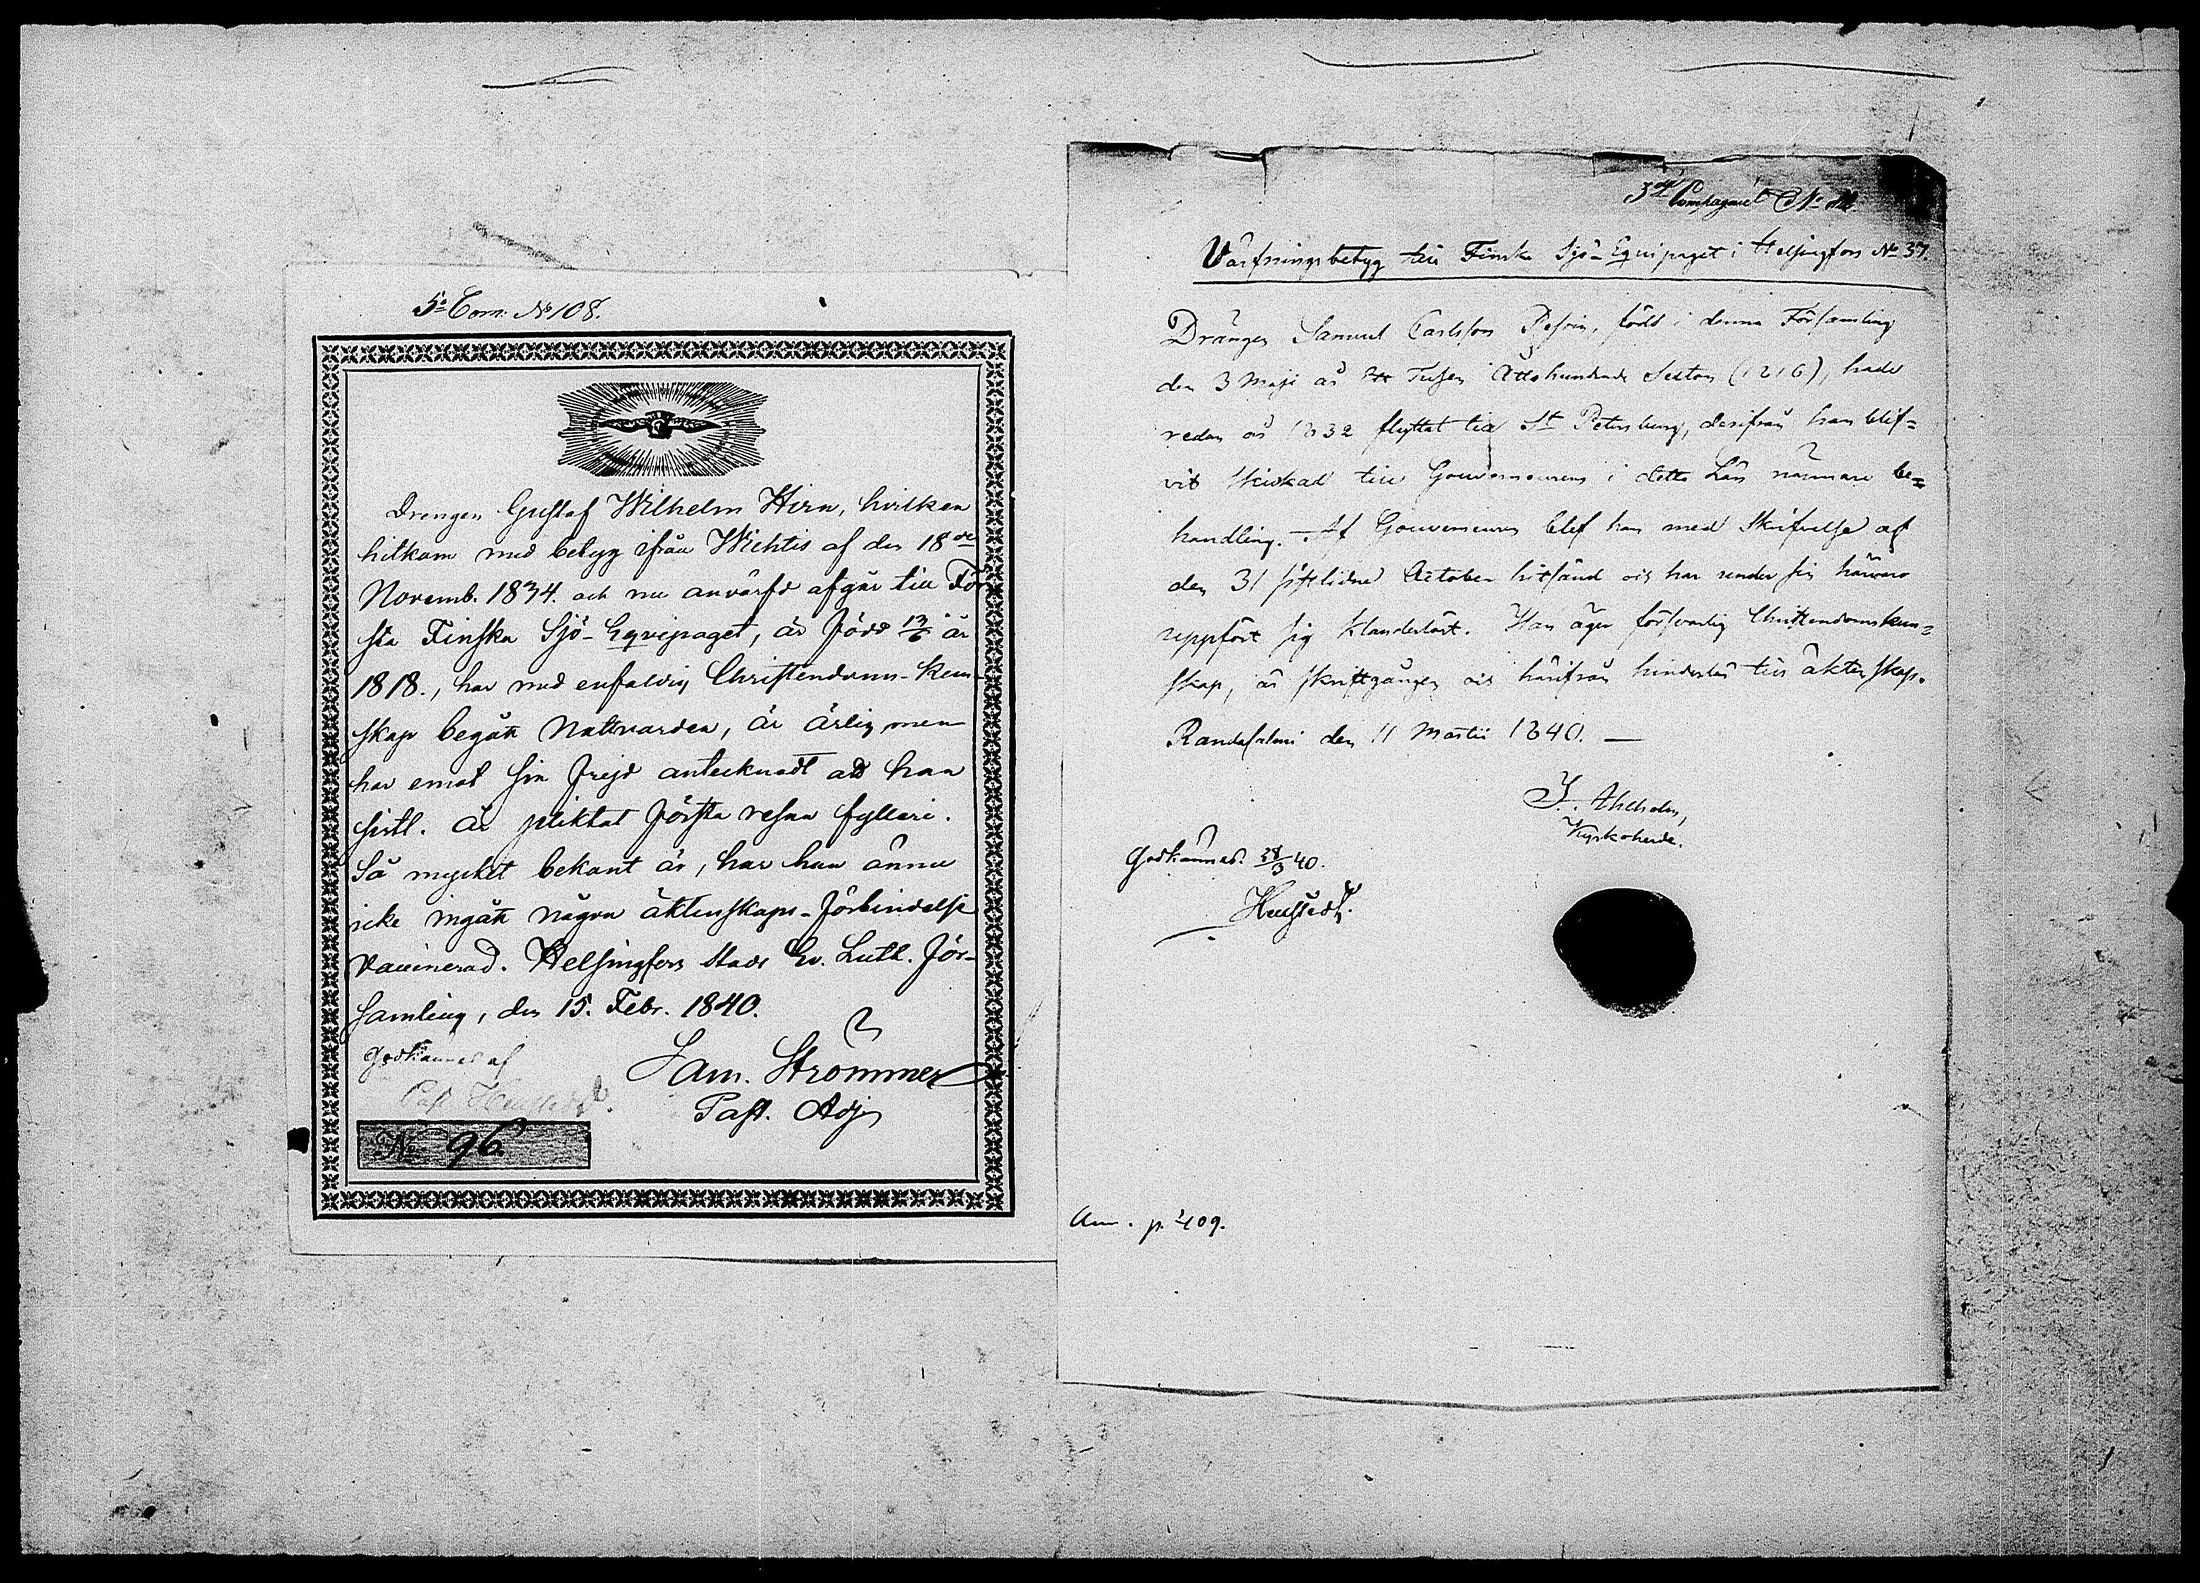 5e Com: No 108.
Drengen Gustaf Wilhelm Hirn, hvilken
hitkom med betyg ifrån Wichtis af den 18de
Novemb. 1834. och nu anvärfd afgår till För
sta Finska Sjö-Eqvipaget, är född 13/6 år
1818., har med enfaldig Christendoms-kun-
skap begått Nattvarden, är ärlig men
har emot sin frejd antecknadt att han
sistl. år pliktat första resan fylleri.
Så mycket bekant är, har han ännu
icke ingått några äktenskaps-förbindelse
Vaccinerad. Helsingfors Stads Ev. Luth. För-
samling, den 15. Febr. 1840.
Sam. Strömmer
Past. Adj
Godkännes af
Past
No 96.
3dje Compagniet No
Värfningsbetyg till Finska Sjö-Equipaget i Helsingfors No 37.
Drängen Samuel Carlsson, född i denna Församling
den 3 Maji år Tusen Åttahundrade Sexton (1816), hade
redan år 1832 flyttat till St Petersburg, derifrån han blif-
vit skickad till Gouverneuren i detta Län närmare be-
handling. - Af Gouverneuren blef han med Skrifvelse af
den 31 sistlidne October hitsänd och har under sin härvaro
uppfört sig klanderlöst. Han äger försvarlig Christendomskun-
skap, är skriftgången och härifrån hinderslös till äktenskap.
Randasalmi den 11 Martii 1840. —
Kyrkoherde.
Godkännes. /3 40.
p. 409.